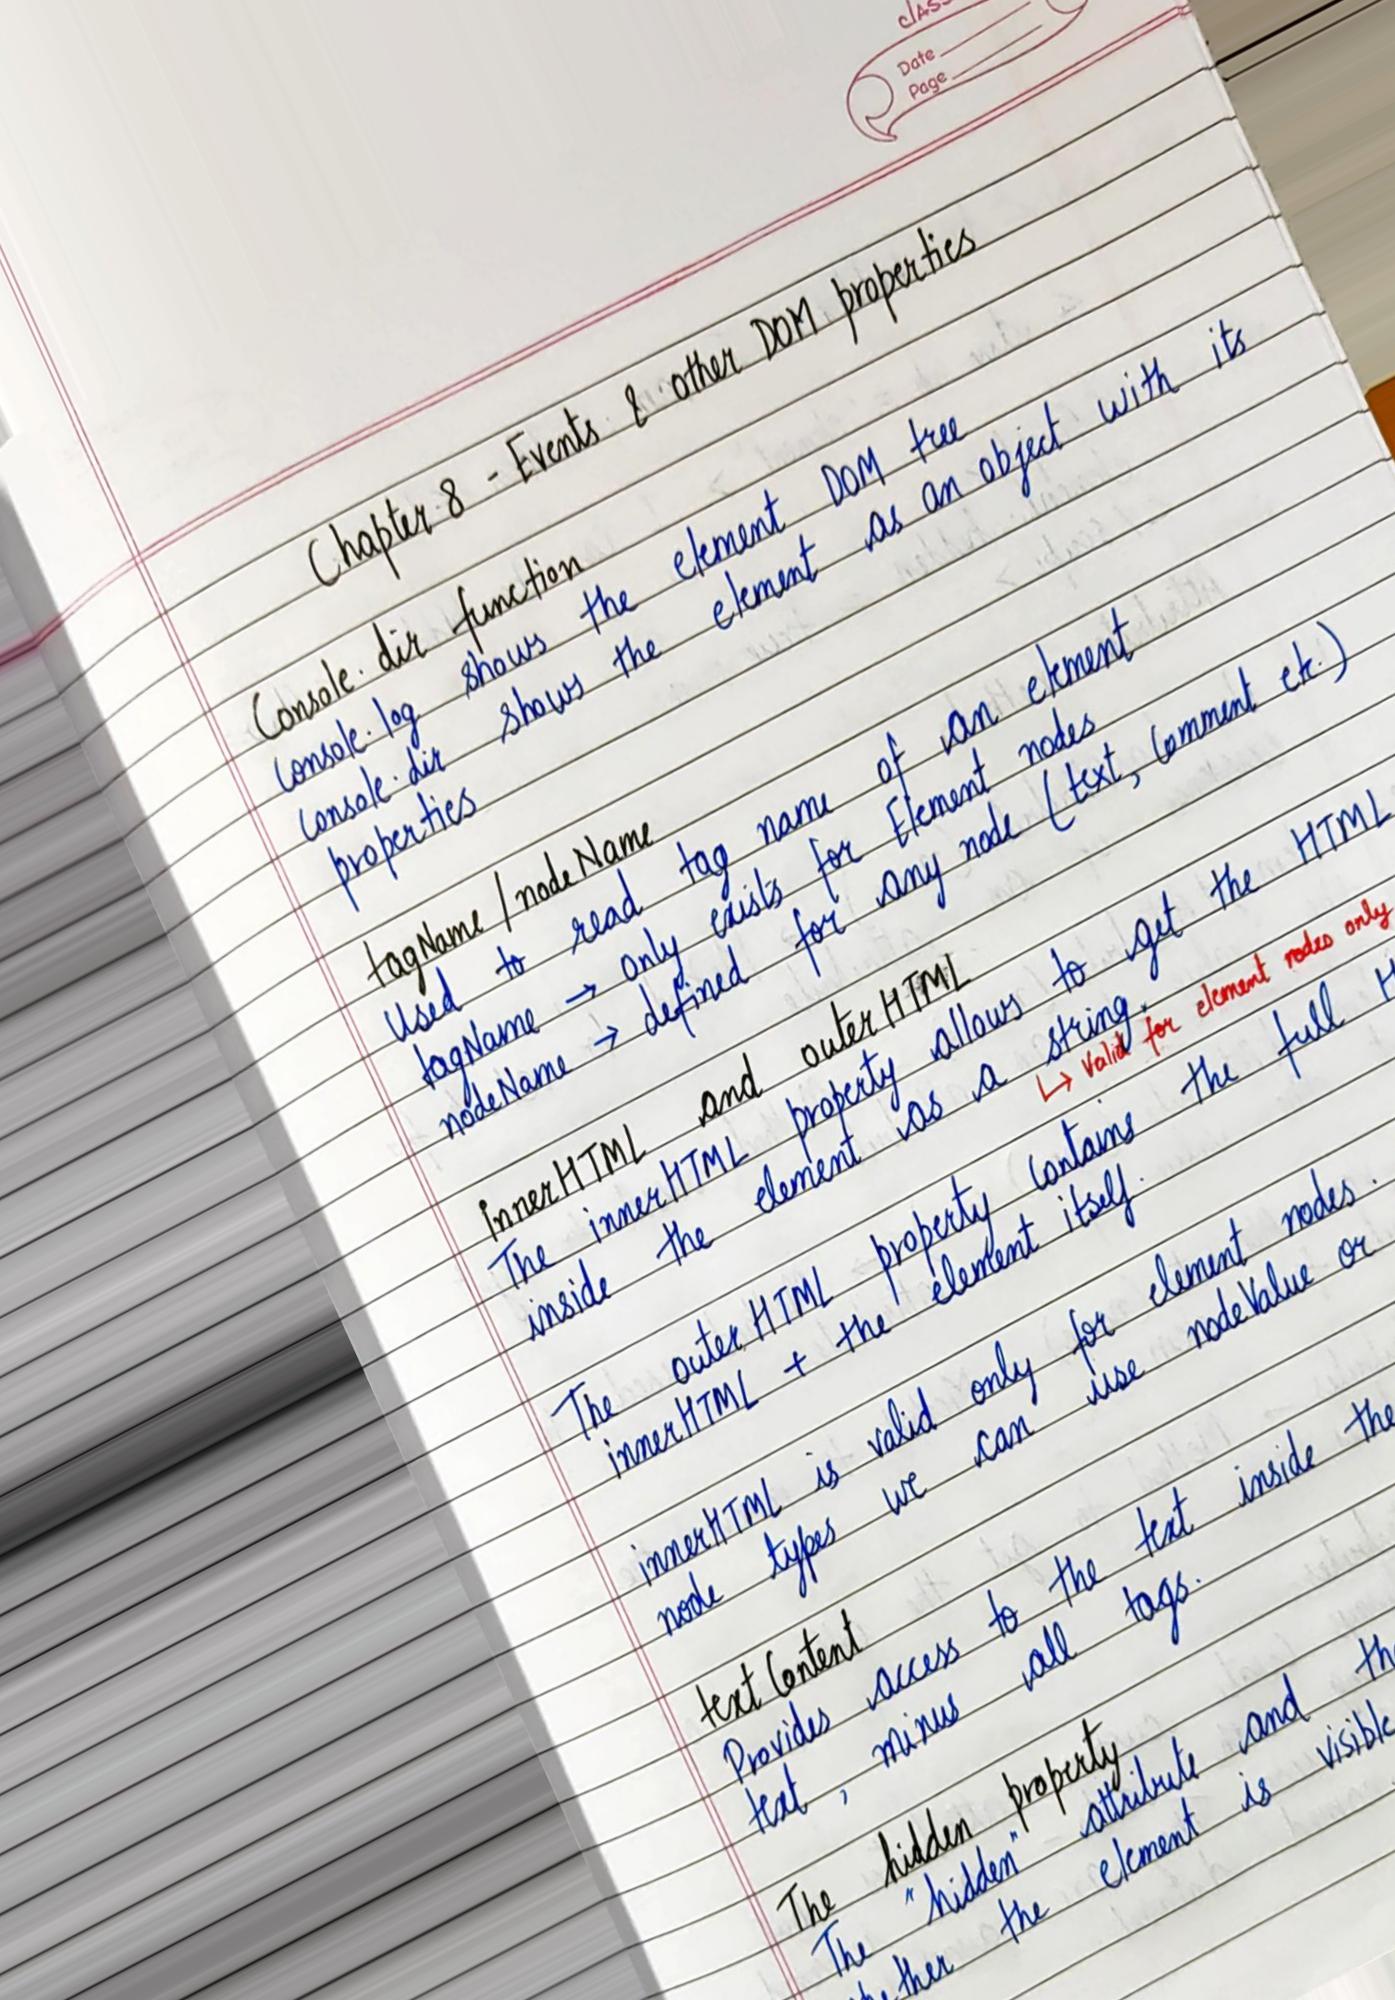 Date
Page
Chapter 8 - Events & other DOM properties
Console.dir function
console.log shows the element DOM tree
console.dir shows the element as an object with its
properties
tagName / nodeName
Used to read tag name of an element
tagName → only exists for Element nodes
nodeName → defined for any node (text, comment etc.)
innerHTML and outerHTML
The innerHTML property allows to get the HTML
inside the element as a string.
↳ valid for element nodes only
The outerHTML property contains the full
innerHTML + the element itself.
innerHTML is valid only for element nodes.
node types we can use nodeValue or
textContent
Provides access to the text inside the
text, minus all tags.
The hidden property
The "hidden" attribute and
the element is visible